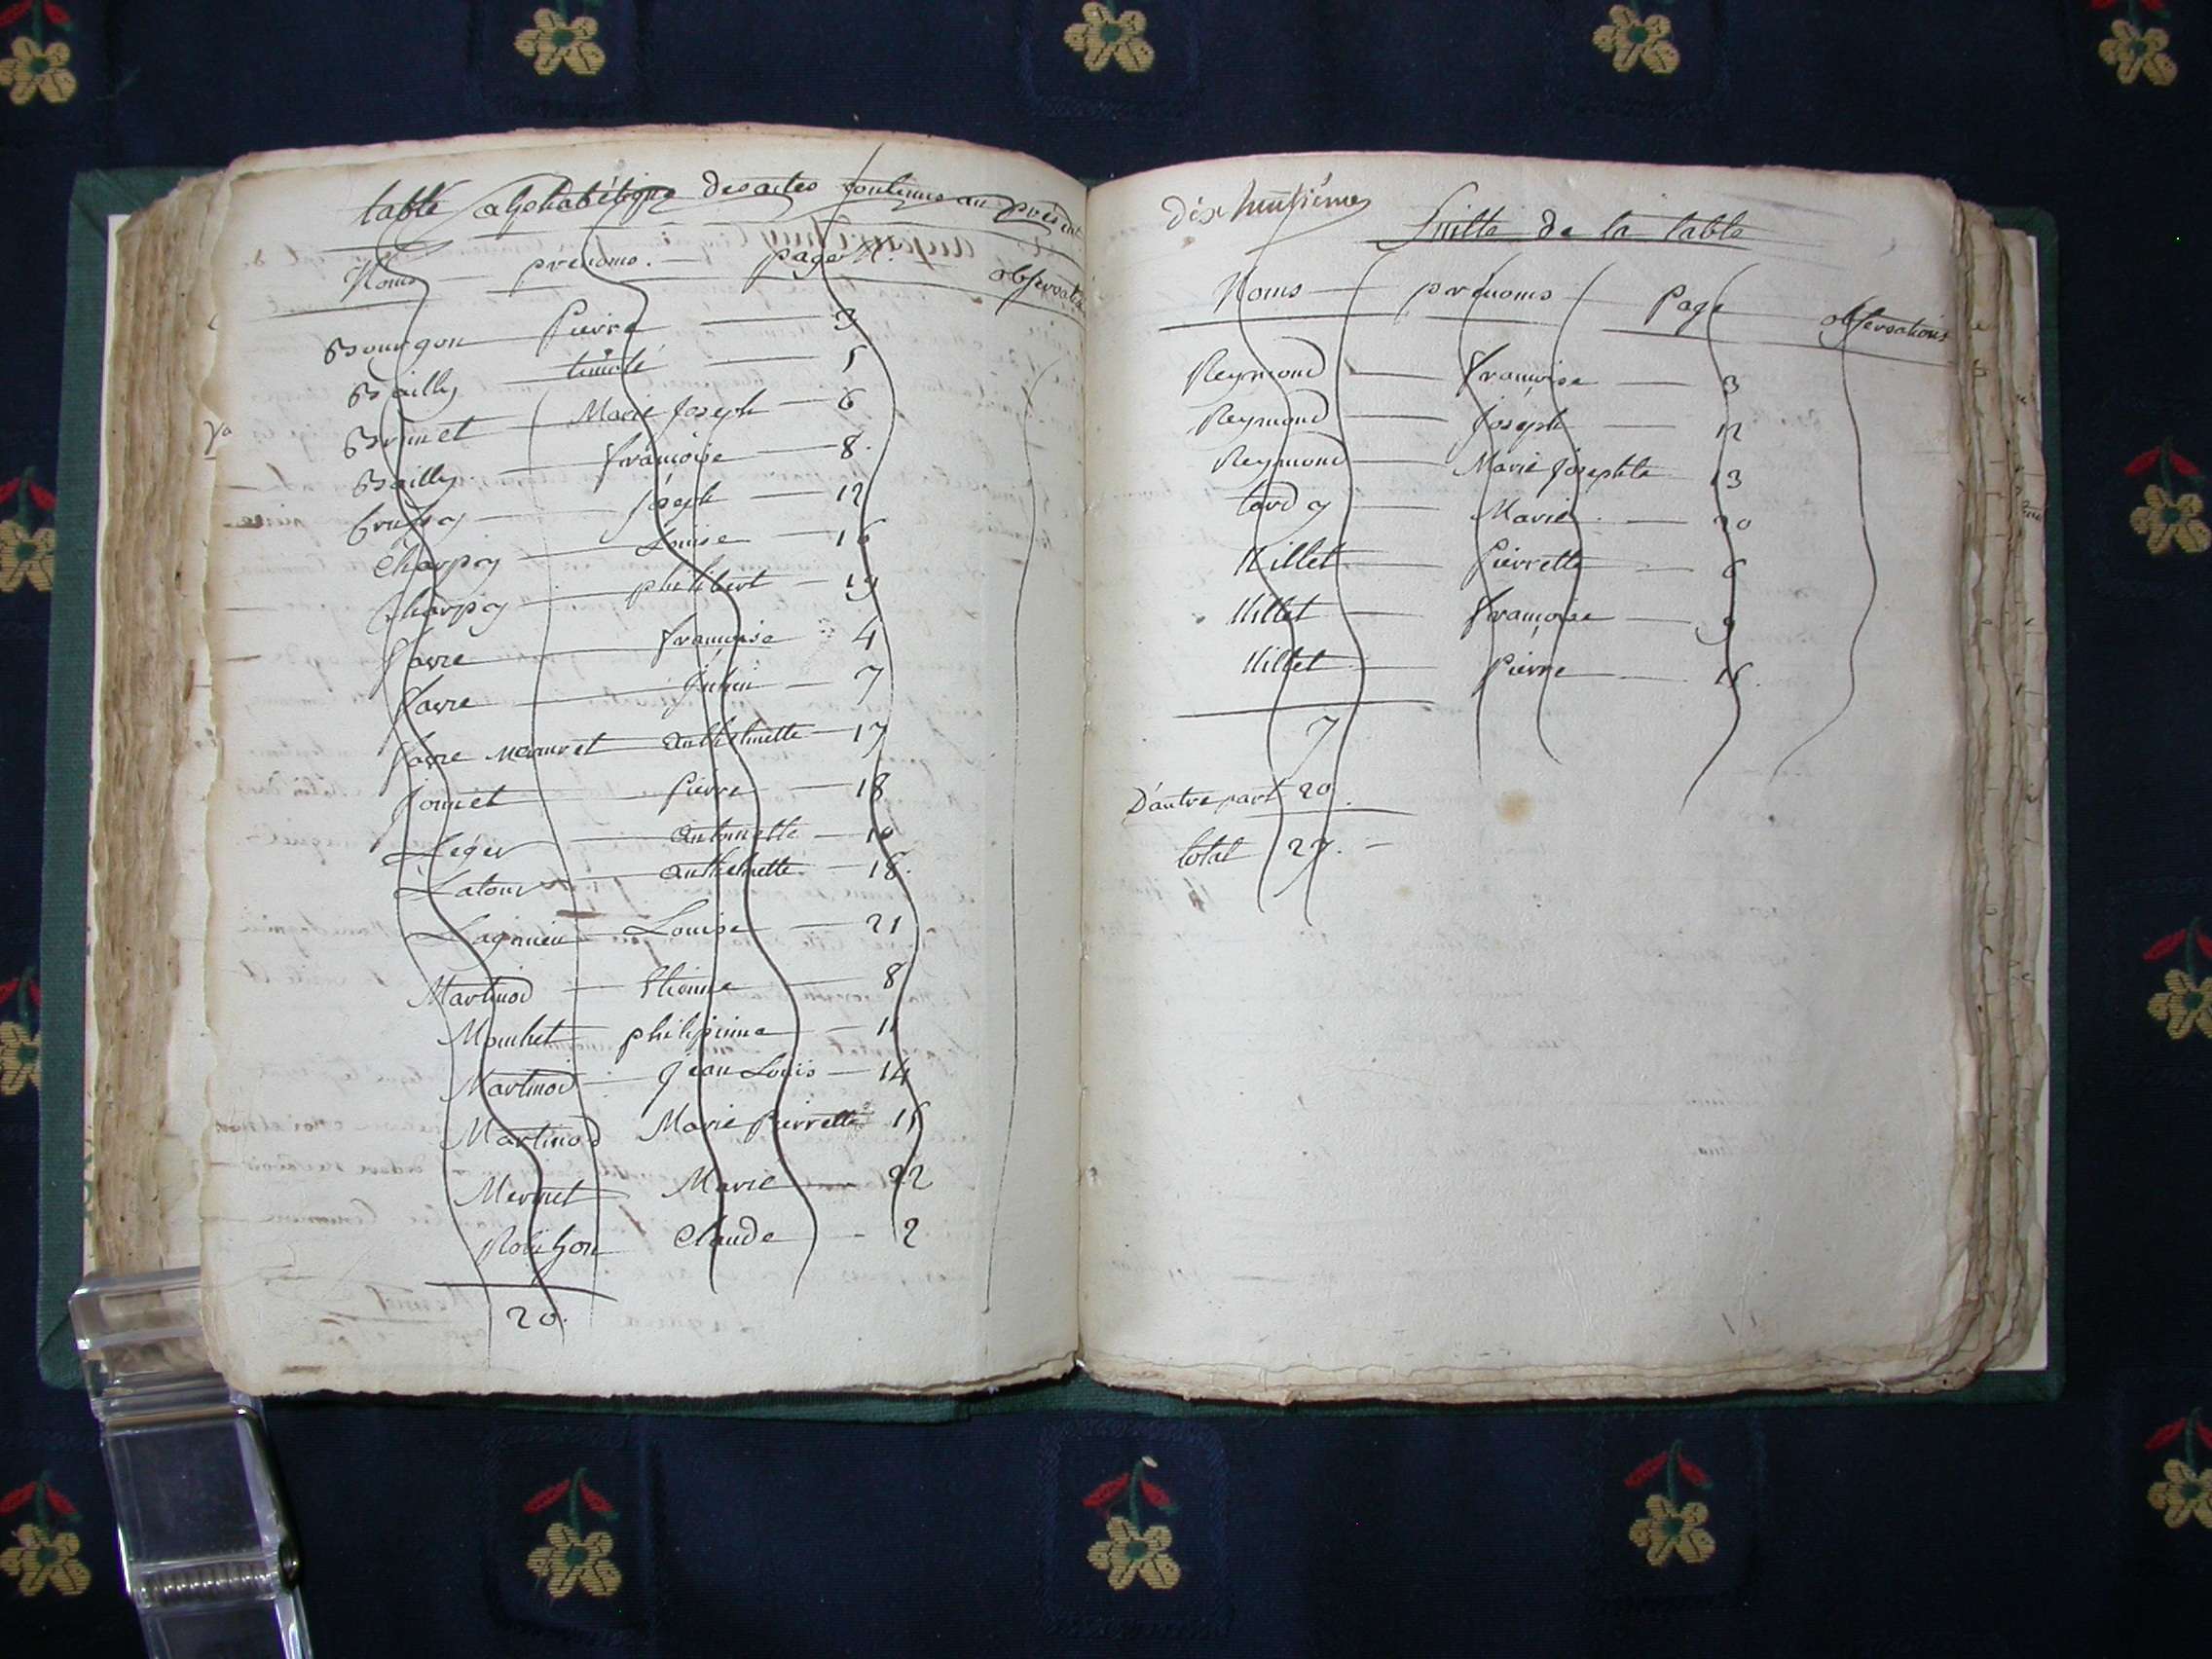 table alphabétique des actes contenus au présent
Noms prénoms. page N. observations
Bourgon Pierre 3
Bailly 5
Brunet Marie Joseph 6
Bailly françoise 8.
Joseph 12
Charpy Louise 16
Charpy philibert 19
favre françoise 4
favre 7
favre anthelmette 17
Jouvet Pierre 18
Léger antoinette 10
Latour anthelmette 18.
Lagnieu Louise 21
Martinod Etienne 8
Mouchet philipinne 11
Martinod Jean Louis 14
Martinod Marie Pierrette 15
Mermet Marie 22
Claude 2
20.
dix huitième
Suitte de la table
Noms prénoms Page observations
Reymond françoise 3
Reymond Joseph 12
Reymond Marie Josephte 13
tardy Marie 20
Millet Pierrette 6
Millet françoise 9
Millet Pierre 15.
7
D'autre part 20.
total 27.